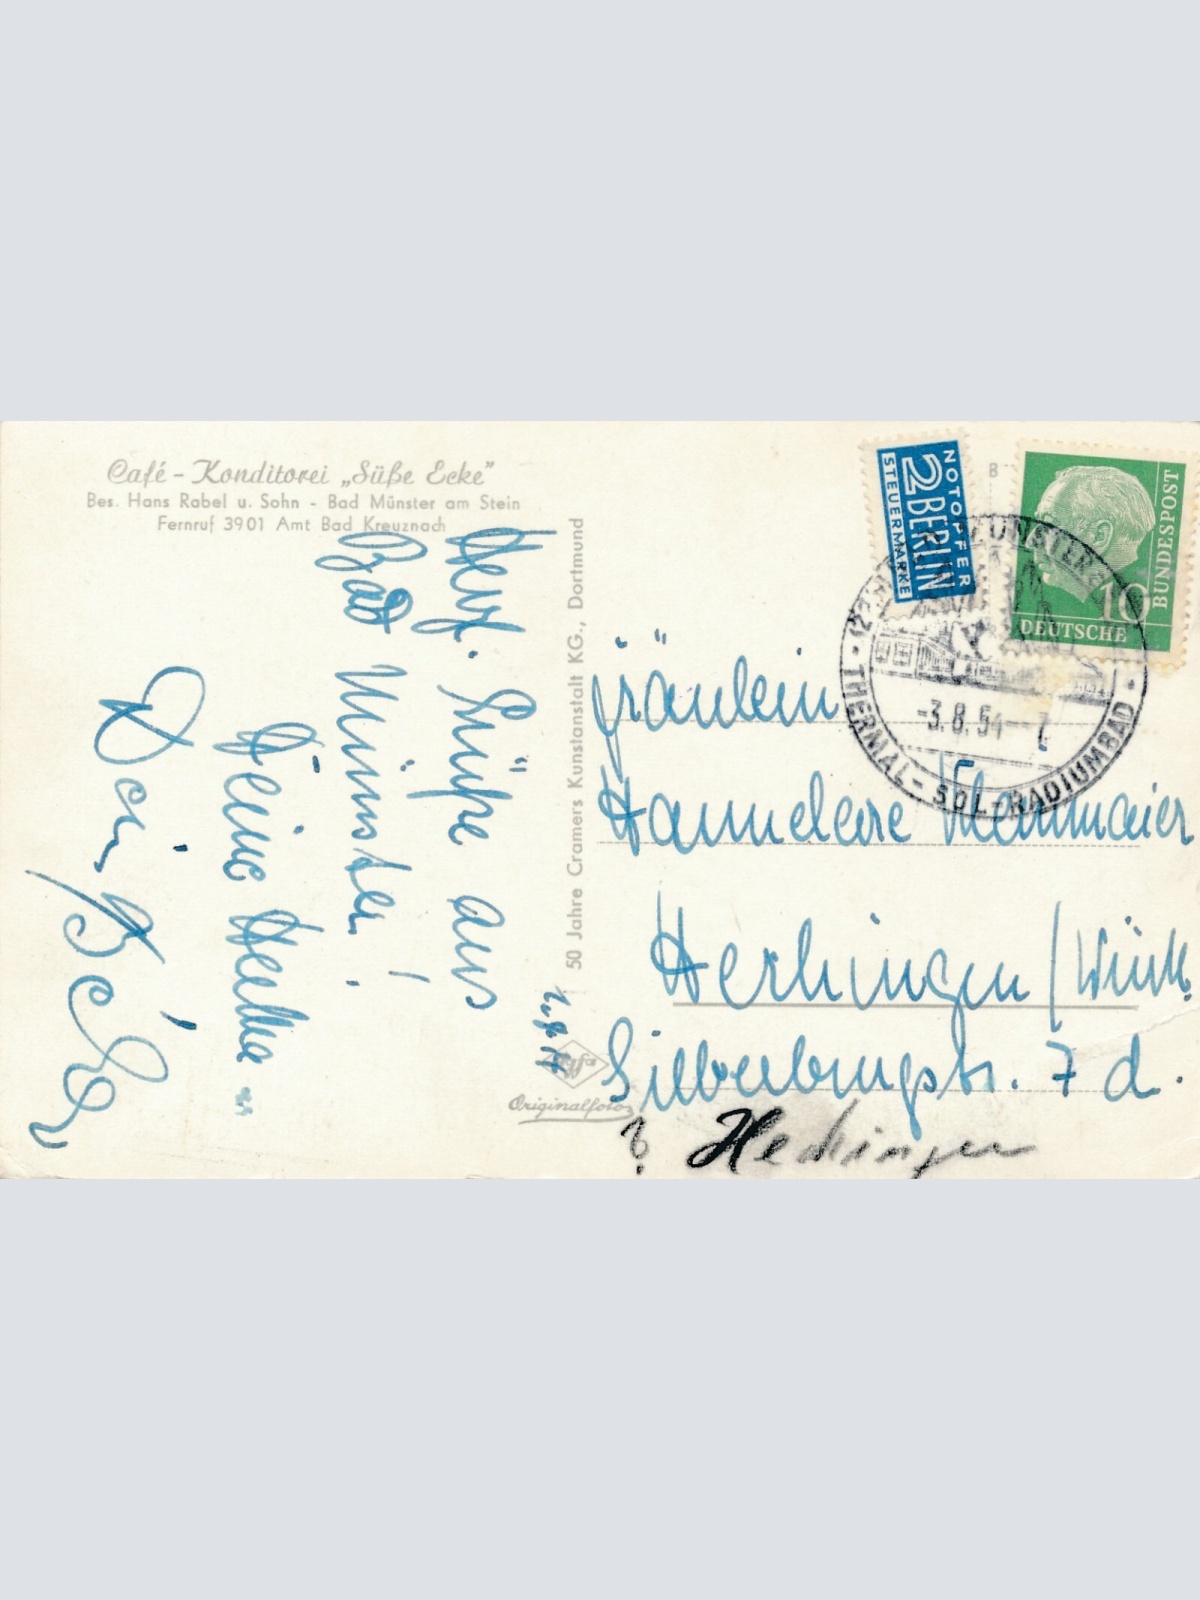 Café - Konditorei „Süße Ecke"
Bes. Hans Rabel u. Sohn - Bad Münster am Stein
Fernruf 3901 Amt Bad Kreuznach
Herzl. Grüße aus
Bad Münster!
Deine
Dein
50 Jahre Cramers Kunstanstalt KG., Dortmund
Agfa
Originalfoto
NOTOPFER
2 BERLIN
STEUERMARKE
B
10
DEUTSCHE
BUNDESPOST
-3.8.54
THERMAL - SOL - RADIUMBAD
Fräulein
Hannelore
Herlingen / Württ.
Silberburgstr. 7 d.
? Hechingen